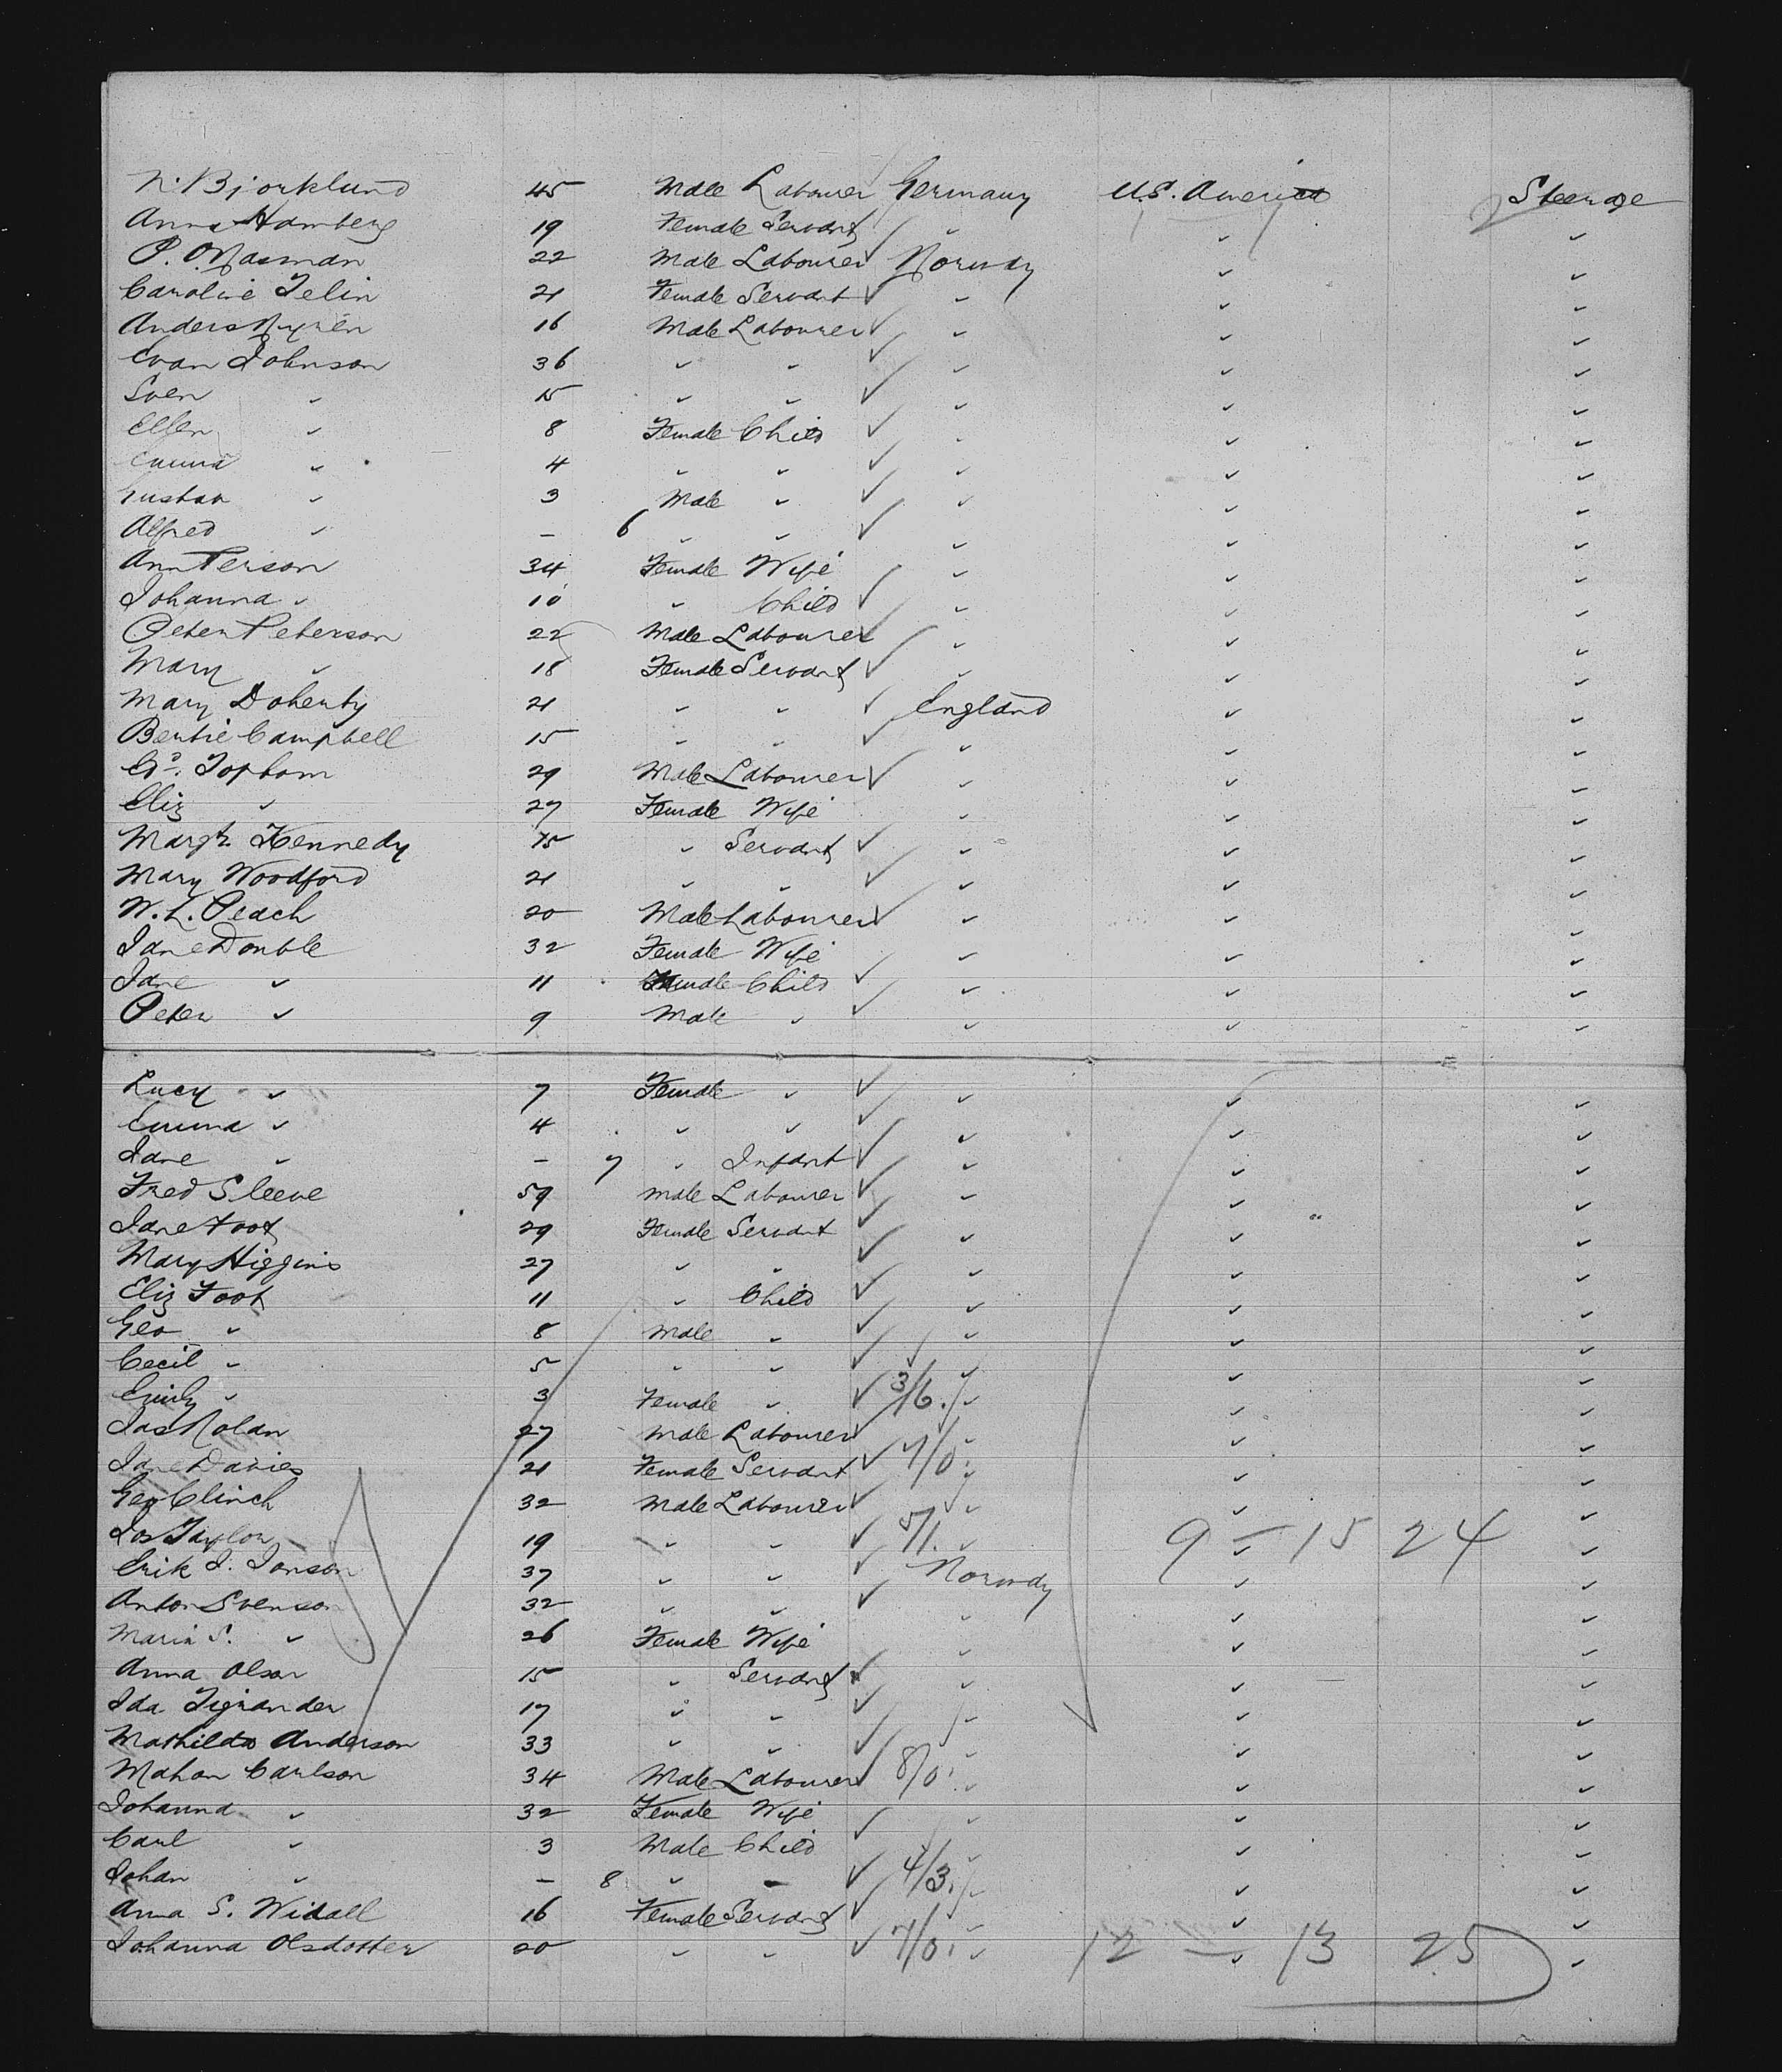 N. Bjorklund 45 Male Labourer Germany U.S. America Steerage
Anna Hamberg 19 Female Servant " " "
P. O. Nasman 22 Male Labourer Norway " "
Caroline Telin 21 Female Servant " " "
Anders Nyren 16 Male Labourer " " "
Evan Johnson 36 " " " " "
Sven " 15 " " " " "
Ellen " 8 Female Child " " "
Emma " 4 " " " " "
Gustav " 3 Male " " " "
Alfred " – 6 " " " " "
Ann Person 34 Female Wife " " "
Johanna " 10 " Child " " "
Peter Peterson 22 Male Labourer " " "
Mary " 18 Female Servant " " "
Mary Doherty 21 " " England " "
Bertie Campbell 15 " " " " "
Topham 29 Male Labourer " " "
Eliz " 27 Female Wife " " "
Margt. Kennedy 75 " Servant " " "
Mary Woodford 21 " " " " "
W. L. Peach 20 Male Labourer " " "
Jane Double 32 Female Wife " " "
Jane " 11 Female Child " " "
Peter " 9 Male " " " "
Lucy " 7 Female " " " "
Emma " 4 " " " " "
Jane " – 7 " Infant " " "
Fred Sleeve 59 Male Labourer " " "
Jane Foot 29 Female Servant " " "
Mary Higgins 27 " " " " "
Eliz Foot 11 " Child " " "
Geo " 8 Male " " " "
Cecil " 5 " " " " "
Emily " 3 Female " 3/6. " " "
Jas Nolan 27 Male Labourer " " "
Jane Davies 21 Female Servant 7/0. " " "
Geo Clinch 32 Male Labourer " " "
Jos Taylor 19 " " 5/1. " " "
9 – 15 24
Erik J. Jonson 37 " " Norway " "
Anton Svenson 32 " " " " "
Maria S. " 26 Female Wife " " "
Anna Olson 15 " Servant " " "
Ida Tigrander 17 " " " " "
Mathilda Anderson 33 " " " " "
Mahon Carlson 34 Male Labourer 8/0. " " "
Johanna " 32 Female Wife " " "
Carl " 3 Male Child " " "
Johan " – 8 " " 4/3. " " "
Anna S. Widall 16 Female Servant " " "
Johanna Olsdotter 20 " " 7/0. " " "
12 – 13 25